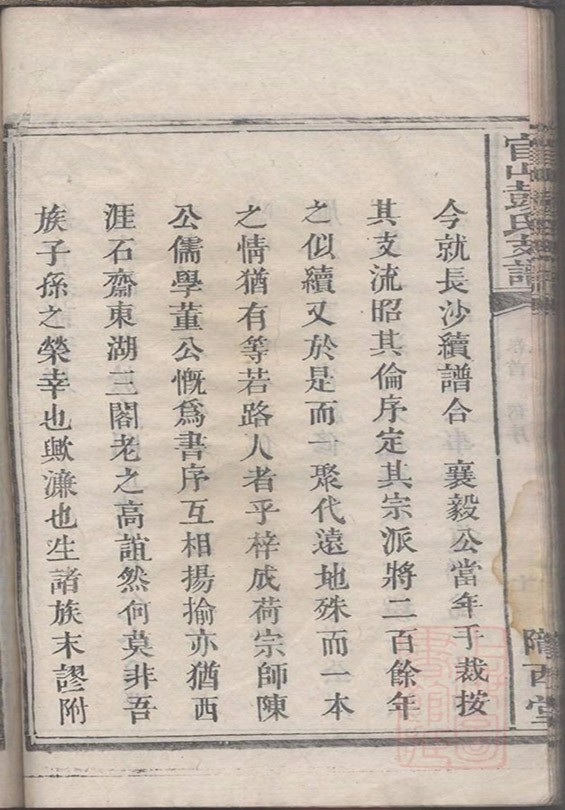 官山彭氏支譜
隴西堂
今就長沙續譜合襄毅公當年手裁按
其支流昭其倫序定其宗派將二百餘年
之似續又於是而聚代遠地殊而一本
之情猶有等若路人者乎梓成荷宗師陳
公儒學董公慨爲書序互相揚揄亦猶西
涯石齋東湖三閣老之高誼然何莫非吾
族子孫之榮幸也歟濂也生諸族末謬附